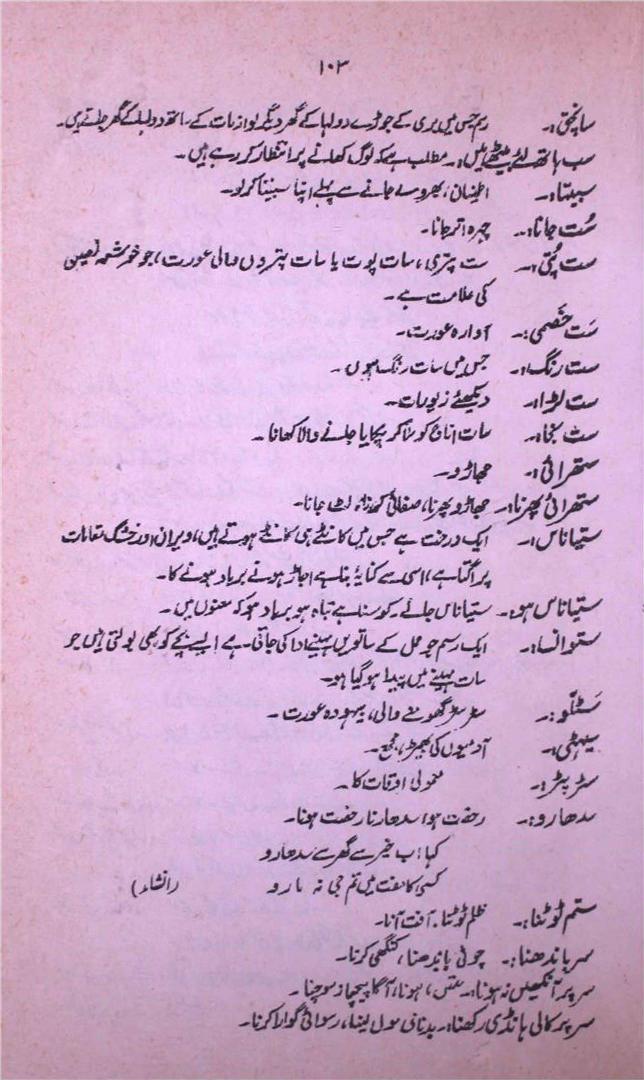 ۱۰۳
ساچق:۔ رسم جس میں بری کے جوڑے دولہا کے گھر دیگر لوازمات کے ساتھ دولہا کے گھر جاتے ہیں۔
سب ہاتھ لئے بیٹھے ہیں:۔ مطلب ہے کہ لوگ کھانے پر انتظار کر رہے ہیں۔
سبیتا:۔ اطمینان، بھروسہ جانے سے پہلے اپنا سبیتا کر لو۔
سُت جانا:۔ چہرہ اتر جانا۔
ست پُتی:۔ ست پتری، سات پوت یا سات پتروں والی عورت، جو خوش نصیبی
کی علامت ہے۔
سَت خَصمی:۔ آوارہ عورت۔
ست رنگ:۔ جس میں سات رنگ ہوں۔
ست لڑا:۔ دیکھئے زیورات۔
ست نجا:۔ سات اناج کو ملا کر پکایا جانے والا کھانا۔
ستھرائی:۔ جھاڑو۔
ستھرائی پھرنا:۔ جھاڑو پھرنا، صفائی لٹ جانا۔
ستیاناس:۔ ایک درخت ہے جس میں کانٹے ہی کانٹے ہوتے ہیں، ویران اور خشک مقامات
پر اگتا ہے، اسی سے کنایۂ بنا ہے اجاڑ ہونے برباد ہونے کا۔
ستیاناس ہو:۔ ستیاناس جائے۔ کوسنا ہے تباہ ہو برباد ہو کے معنوں میں۔
ستوانسا:۔ ایک رسم جو حمل کے ساتویں مہینے ادا کی جاتی ہے ایسے بچے کو بھی بولتی ہیں جو
سات مہینے میں پیدا ہو گیا ہو۔
سَٹلّو:۔ سڑ سڑ گھومنے والی، بیہودہ عورت۔
آدمیوں کی بھیڑ، مجمع۔
سٹر پٹر:۔ معمولی اوقات کا۔
سدھارو:۔ رخصت ہو، سدھارنا رخصت ہونا۔
کہا اب خیر سے گھر سے سدھارو
کسی کا مفت میں تم جی نہ مارو (انشاء)
ستم ٹوٹنا:۔ ظلم ٹوٹنا۔ آفت آنا۔
سر باندھنا:۔ چوٹی باندھنا، کنگھی کرنا۔
سر پر آنکھیں نہ ہونا:۔ ہونا، آگا پیچھا نہ سوچنا۔
سر پر کالی ہانڈی رکھنا:۔ بدنامی مول لینا، رسوائی گوارا کرنا۔